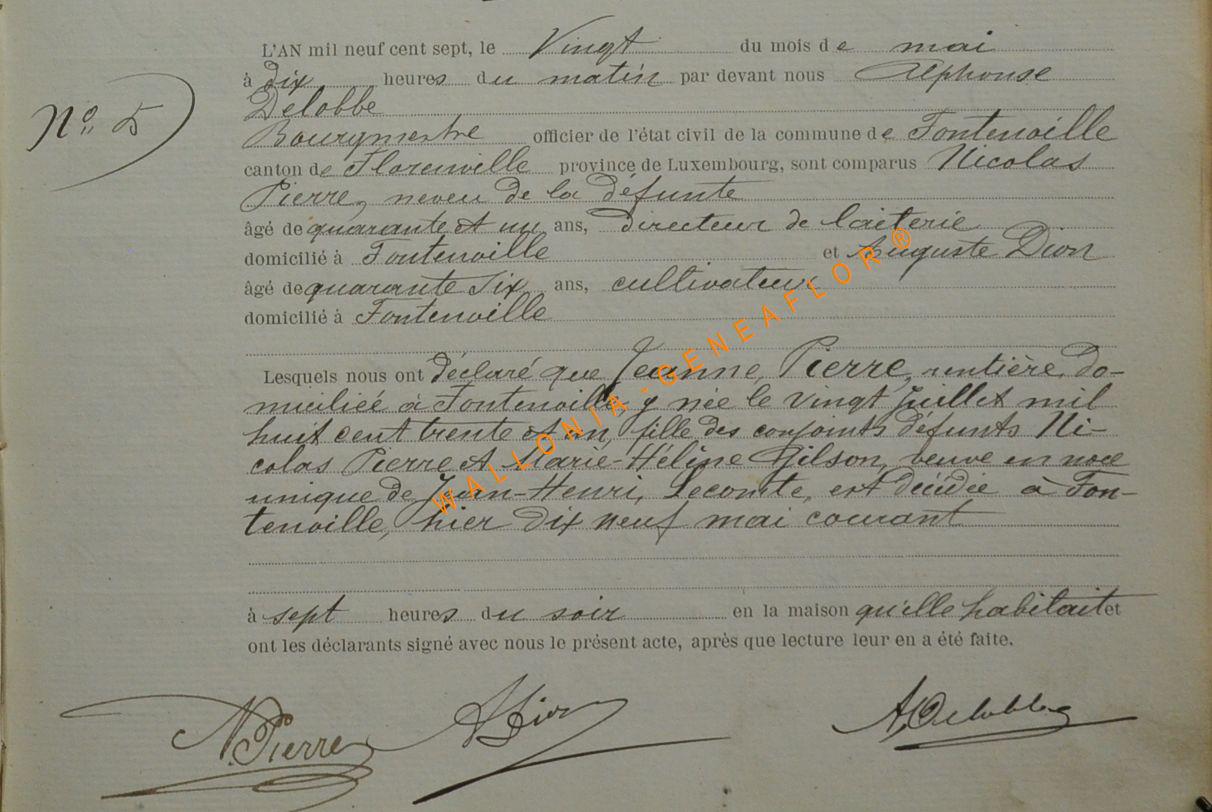 L'AN mil neuf cent sept, le Vingt du mois de mai
à dix heures du matin par devant nous Alphonse
Delobbe
N° 5
Bourgmestre officier de l'état civil de la commune de Fontenoille
canton de Florenville province de Luxembourg, sont comparus Nicolas
Pierre, neveu de la défunte
âgé de quarante et un ans, directeur de laiterie
domicilié à Fontenoille et Auguste Dion
âgé de quarante six ans, cultivateur
domicilié à Fontenoille
Lesquels nous ont déclaré que Jeanne Pierre, rentière, do-
miciliée à Fontenoille y née le vingt juillet mil
huit cent trente et un, fille des conjoints défunts Ni-
colas Pierre et Marie-Héline Gilson, veuve en noce
unique de Jean-Henri, Lecomte, est décédée à Fon-
tenoille, hier dix neuf mai courant
à sept heures du soir en la maison qu'elle habitait et
ont les déclarants signé avec nous le présent acte, après que lecture leur en a été faite.
N. Pierre ADion A. Delobbe
WALLONIA-GENEAFLOR ®